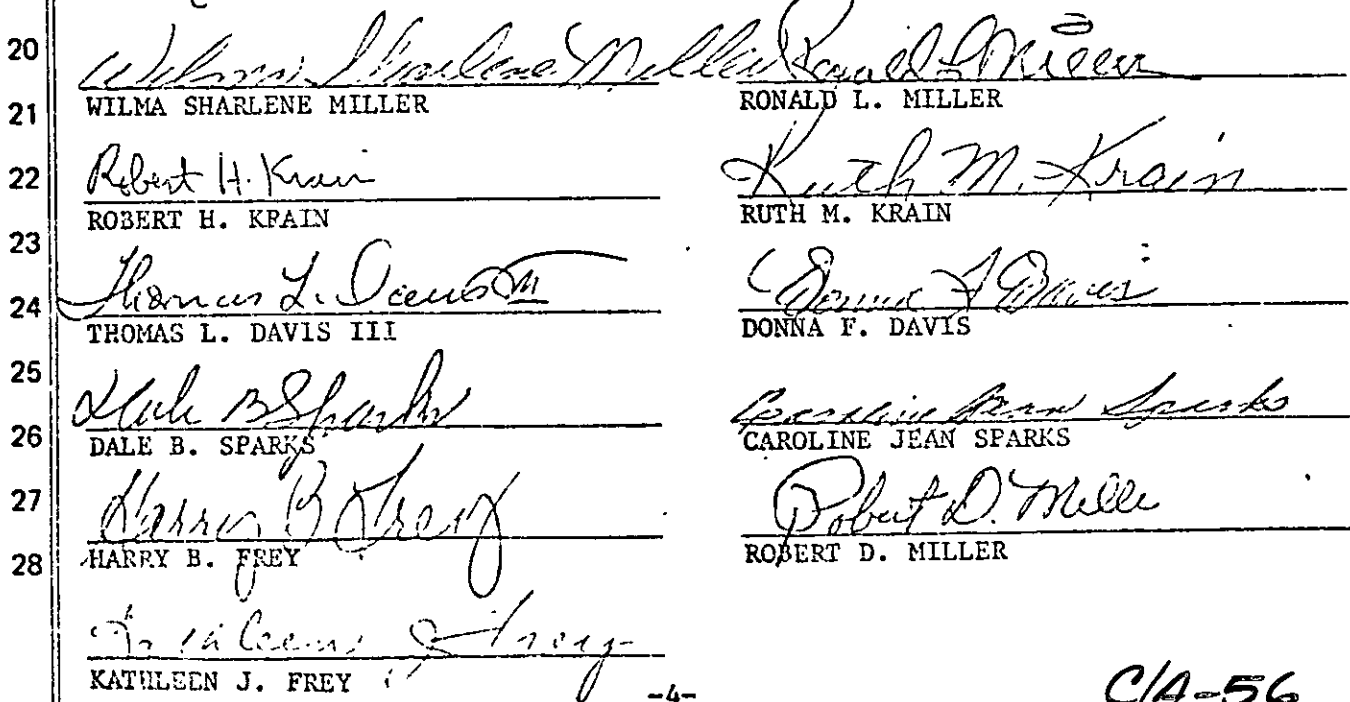 20 Wilma Sharlene Miller Ronald L Miller
WILMA SHARLENE MILLER RONALD L. MILLER
21
22 Robert H. Krain Ruth M. Krain
ROBERT H. KPAIN RUTH M. KRAIN
23
24 Thomas L. Davis III Donna F Davis
THOMAS L. DAVIS III DONNA F. DAVIS
25
Dale B Sparks Caroline Jean Sparks
26 DALE B. SPARKS CAROLINE JEAN SPARKS
27 Harry B Frey Robert D. Miller
28 HARRY B. FREY ROBERT D. MILLER
Kathleen J Frey
KATHLEEN J. FREY
-4- C/A-56